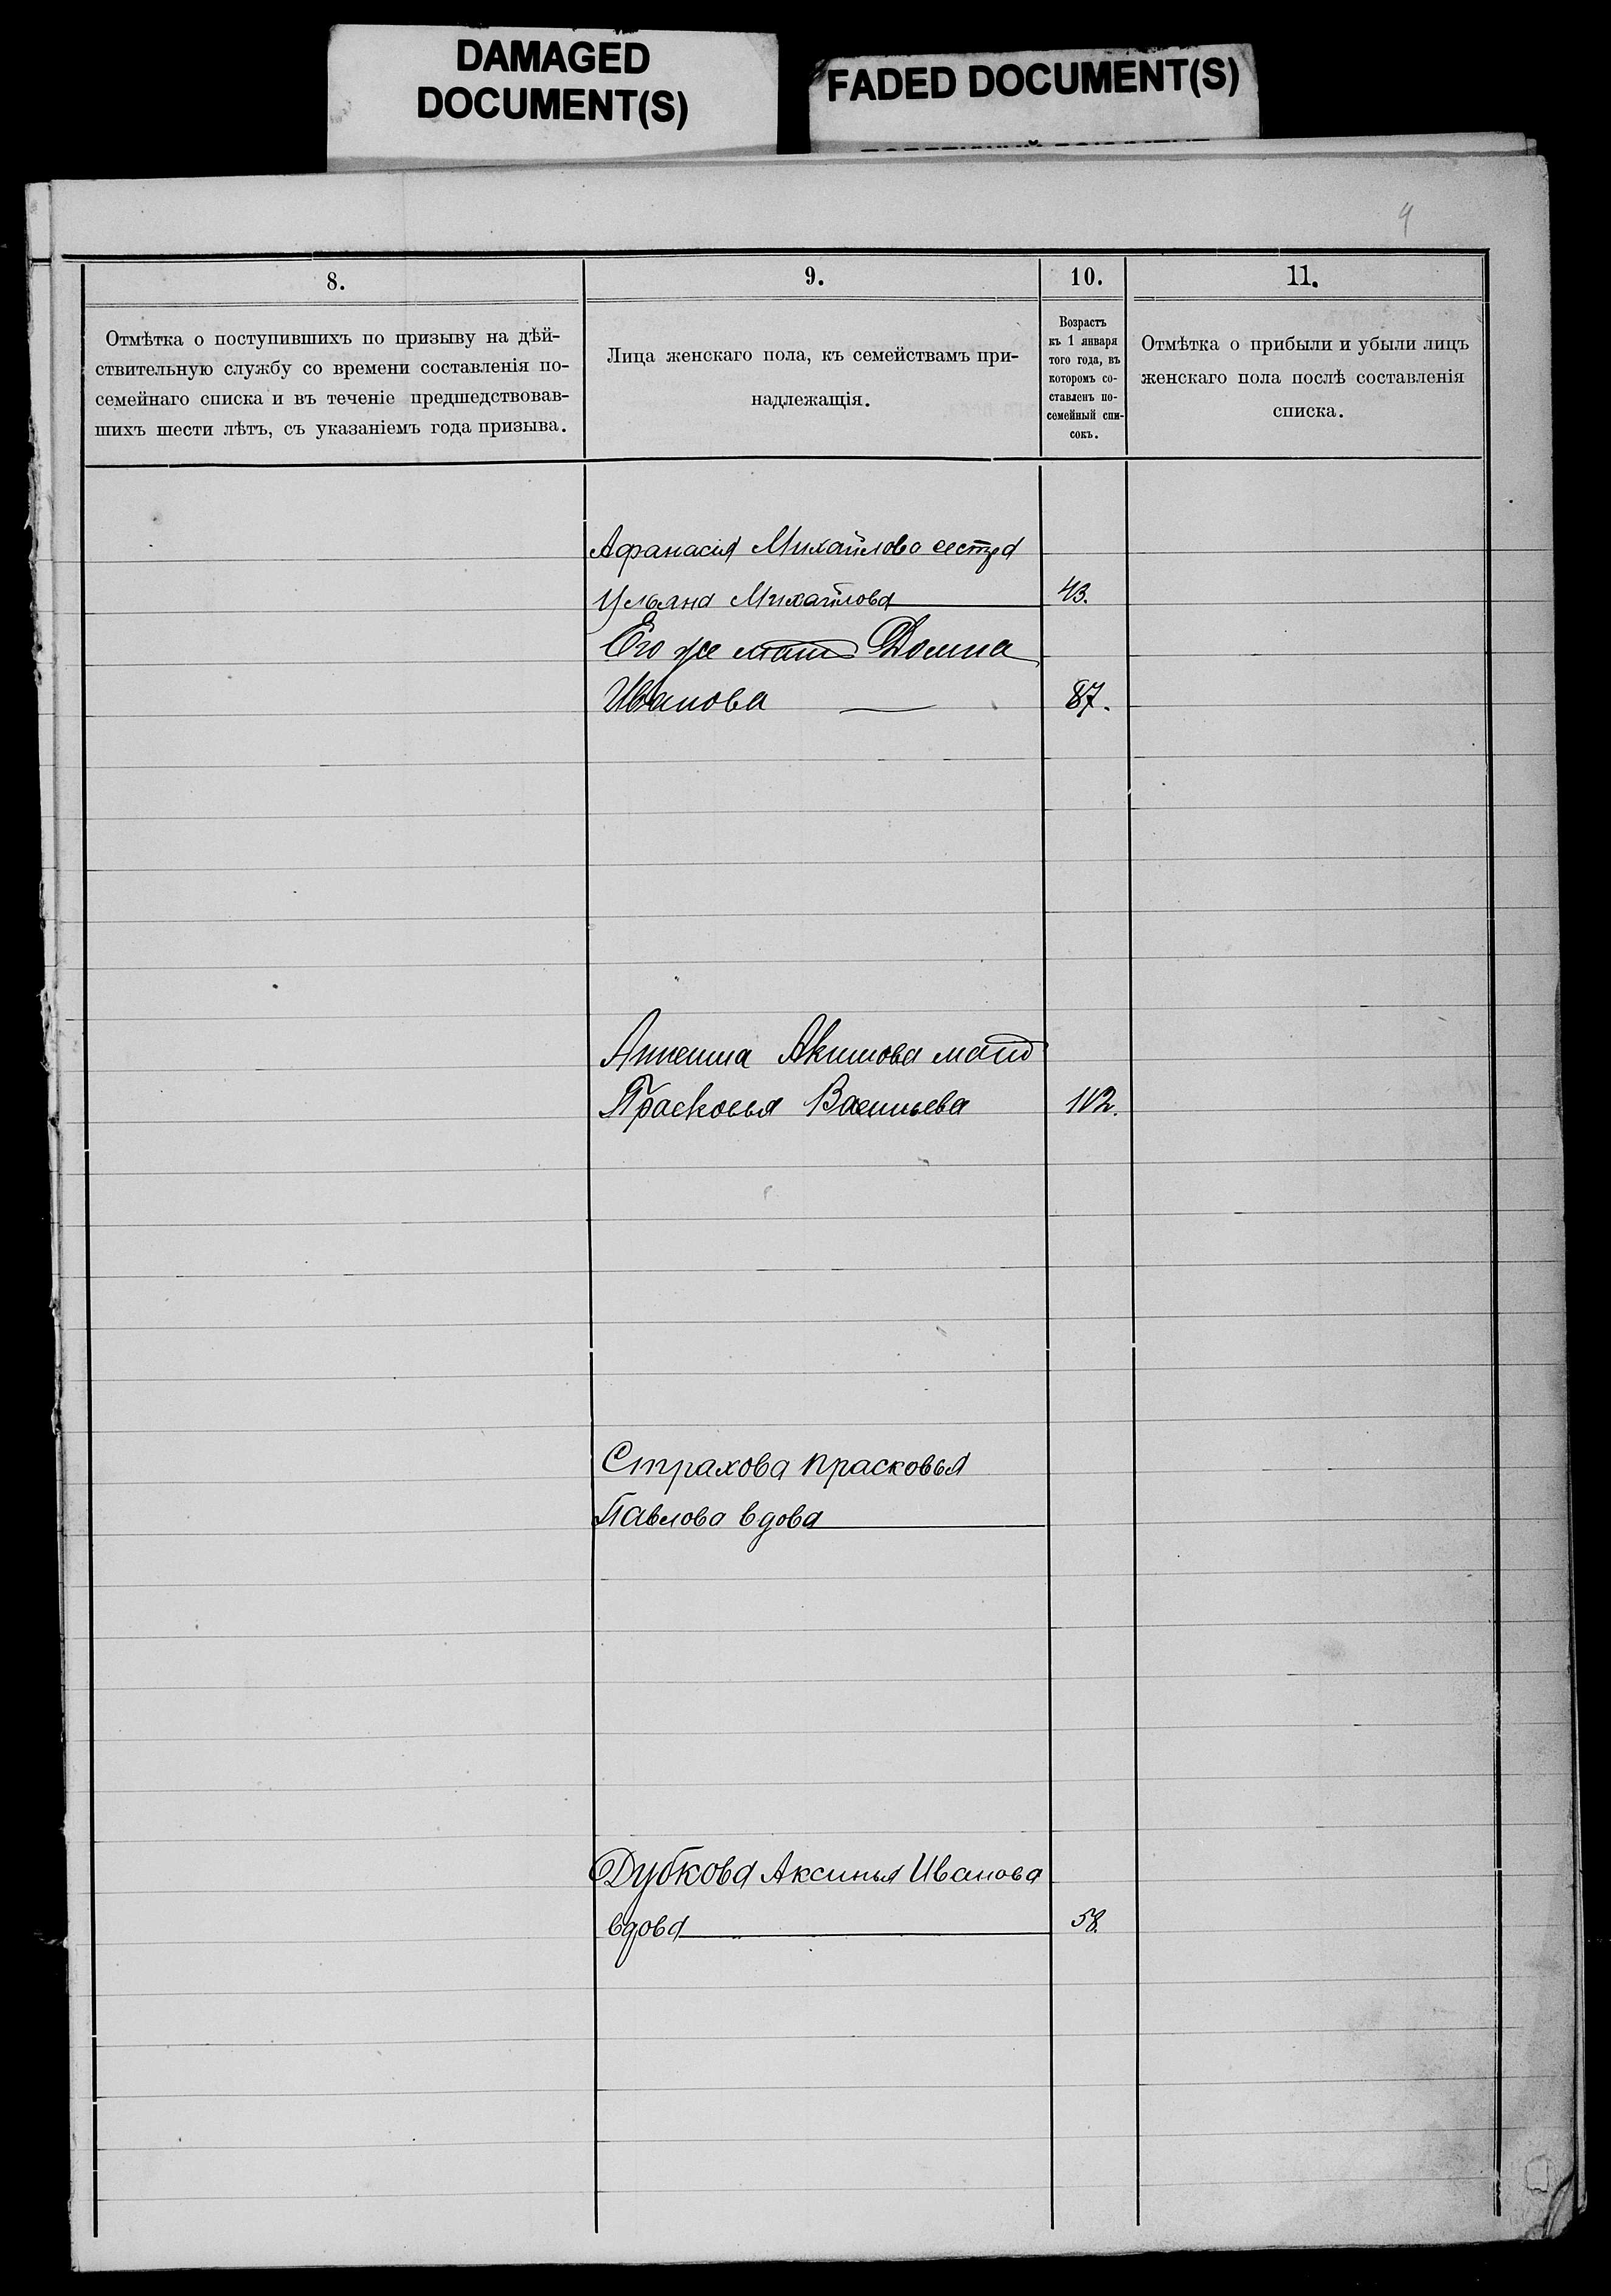 DAMAGED
DOCUMENT(S)
FADED DOCUMENT(S)
9
8.
9.
10.
11.
Отмѣтка о поступившихъ по призыву на дѣй-
ствительную службу со времени составленія по-
семейнаго списка и въ теченіе предшедствовав-
шихъ шести лѣтъ, съ указаніемъ года призыва.
Лица женскаго пола, къ семействамъ при-
надлежащія.
Возрастъ
къ 1 января
того года, въ
которомъ со-
ставленъ по-
семейный спи-
сокъ.
Отмѣтка о прибыли и убыли лицъ
женскаго пола послѣ составленія
списка.
Афанасія Михайлова сестра
Ульяна Михайлова 43.
Его же мать Домна
Иванова 87.
Акимова мать
Прасковья Васильева 102.
Страхова Прасковья
Павлова вдова
Дубкова Аксинья Иванова
вдова 58.